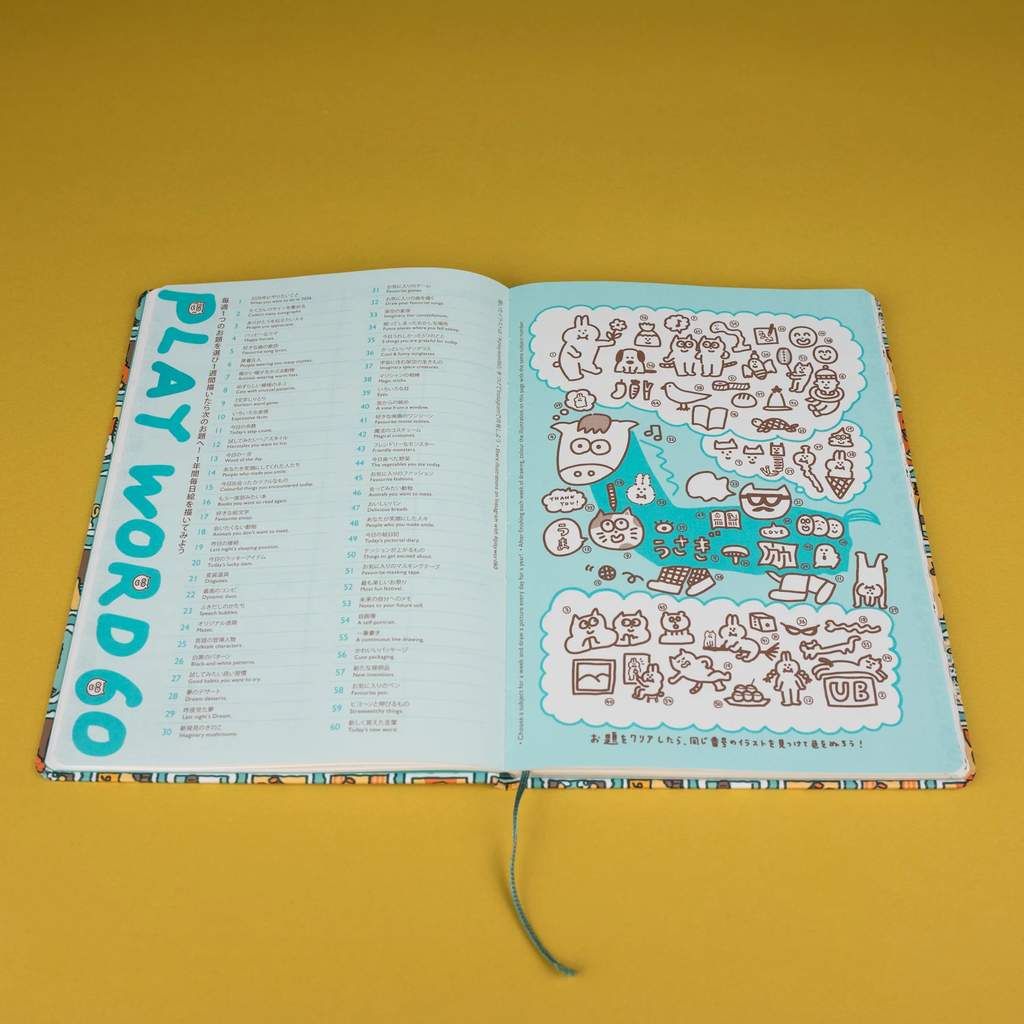 PLAY WORD 60
毎週1つのお題を選び1週間描いたら次のお題へ！1年間毎日絵を描いてみよう
1 2026年にやりたいこと
What you want to do in 2026.
2 たくさんのサインを集める
Collect many autographs.
3 ありがとうを伝えたい人々
People you appreciate.
4 ハッピーなウマ
Happy horses.
5 好きな曲の歌詞
Favourite song lyrics.
6 厚着な人
People wearing too many clothes.
7 暖かい帽子をかぶる動物
Animals wearing warm hats.
8 めずらしい模様のネコ
Cats with unusual patterns.
9 1文字しりとり
10 いろいろな表情
Expressive faces.
11 今日の歩数
Today's step count.
12 試してみたいヘアスタイル
Hairstyles you want to try.
13 今日の一言
Word of the day.
14 あなたを笑顔にしてくれた人たち
People who made you smile.
15 今日出会ったカラフルなもの
Colourful things you encountered today.
16 もう一度読みたい本
Books you want to read again.
17 好きな絵文字
Favourite emoji.
18 会いたくない動物
Animals you don't want to meet.
19 昨日の寝相
Last night's sleeping position.
20 今日のラッキーアイテム
Today's lucky item.
21 変装道具
Disguises.
22 最高のコンビ
Dynamic duos.
23 ふきだしのかたち
Speech bubbles.
24 オリジナル迷路
Mazes.
25 昔話の登場人物
Folktale characters.
26 白黒のパターン
Black-and-white patterns.
27 試してみたい良い習慣
Good habits you want to try.
28 夢のデザート
Dream desserts.
29 昨夜見た夢
Last night's Dream.
30 新発見のきのこ
Imaginary mushrooms.
31 お気に入りのゲーム
Favourite games.
32 お気に入りの曲を描く
Draw your favourite songs.
33 架空の星座
Imaginary star constellations.
34 眠ってしまったおかしな場所
Funny places where you fell asleep.
35 今日うれしかった5つのこと
5 things you are grateful for today.
36 かっこいいサングラス
Cool & funny sunglasses.
37 宇宙に住む架空の生きもの
Imaginary space creatures.
38 マジシャンの相棒
Magic tricks.
39 いろいろな目
Eyes.
40 窓からの眺め
A view from a window.
41 好きな映画のワンシーン
Favourite movie scenes.
42 魔法のコスチューム
Magical costumes.
43 フレンドリーなモンスター
Friendly monsters.
44 今日食べた野菜
The vegetables you ate today.
45 お気に入りのファッション
Favourite fashions.
46 会ってみたい動物
Animals you want to meet.
47 おいしいパン
Delicious breads.
48 あなたが笑顔にした人々
People who you made smile.
49 今日の絵日記
Today's pictorial diary.
50 テンションが上がるもの
Things to get excited about.
51 お気に入りのマスキングテープ
Favourite masking tape.
52 最も楽しいお祭り
Most fun festival.
53 未来の自分へのメモ
Notes to your future self.
54 自画像
A self-portrait.
55 一筆書き
A continuous line drawing.
56 かわいいパッケージ
Cute packaging.
57 新たな発明品
New inventions.
58 お気に入りのペン
Favourite pen.
59 ビヨーンと伸びるもの
Streeeeetchy things.
60 新しく覚えた言葉
Today's new word.
• Choose a subject for a week and draw a picture every day for a year! • After finishing each week of drawing, colour the illustration on this page with the same subject number.
THANK YOU!
うま
うさぎ
LOVE
UB
お題をクリアしたら、同じ番号のイラストを見つけて色をぬろう！